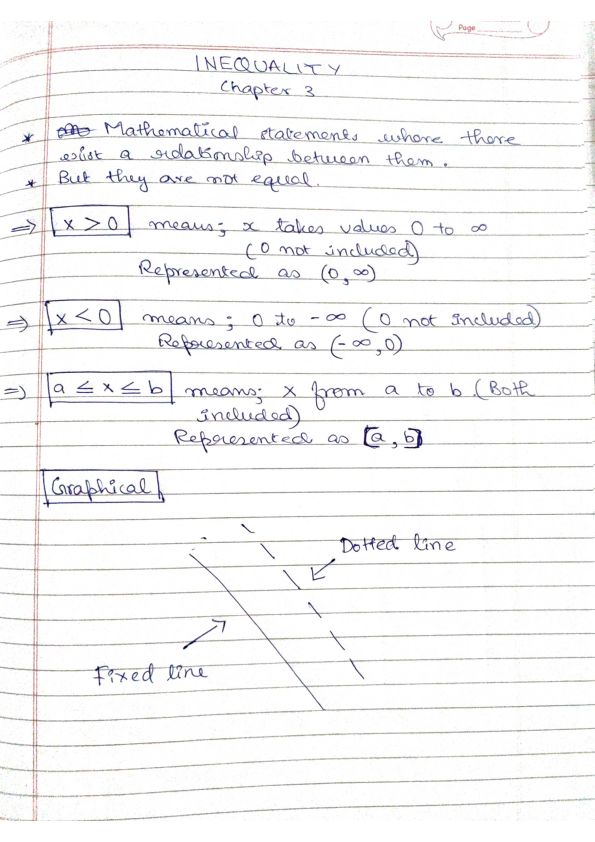 Page
INEQUALITY
Chapter 3
* Mathematical statements where there
exist a relationship between them.
* But they are not equal.
⇒ x > 0 means; x takes values 0 to ∞
(0 not included)
Represented as (0, ∞)
⇒ x < 0 means; 0 to -∞ (0 not included)
Represented as (-∞, 0)
⇒ a ≤ x ≤ b means; x from a to b. (Both
included)
Represented as [a, b]
Graphical
Dotted line
Fixed line